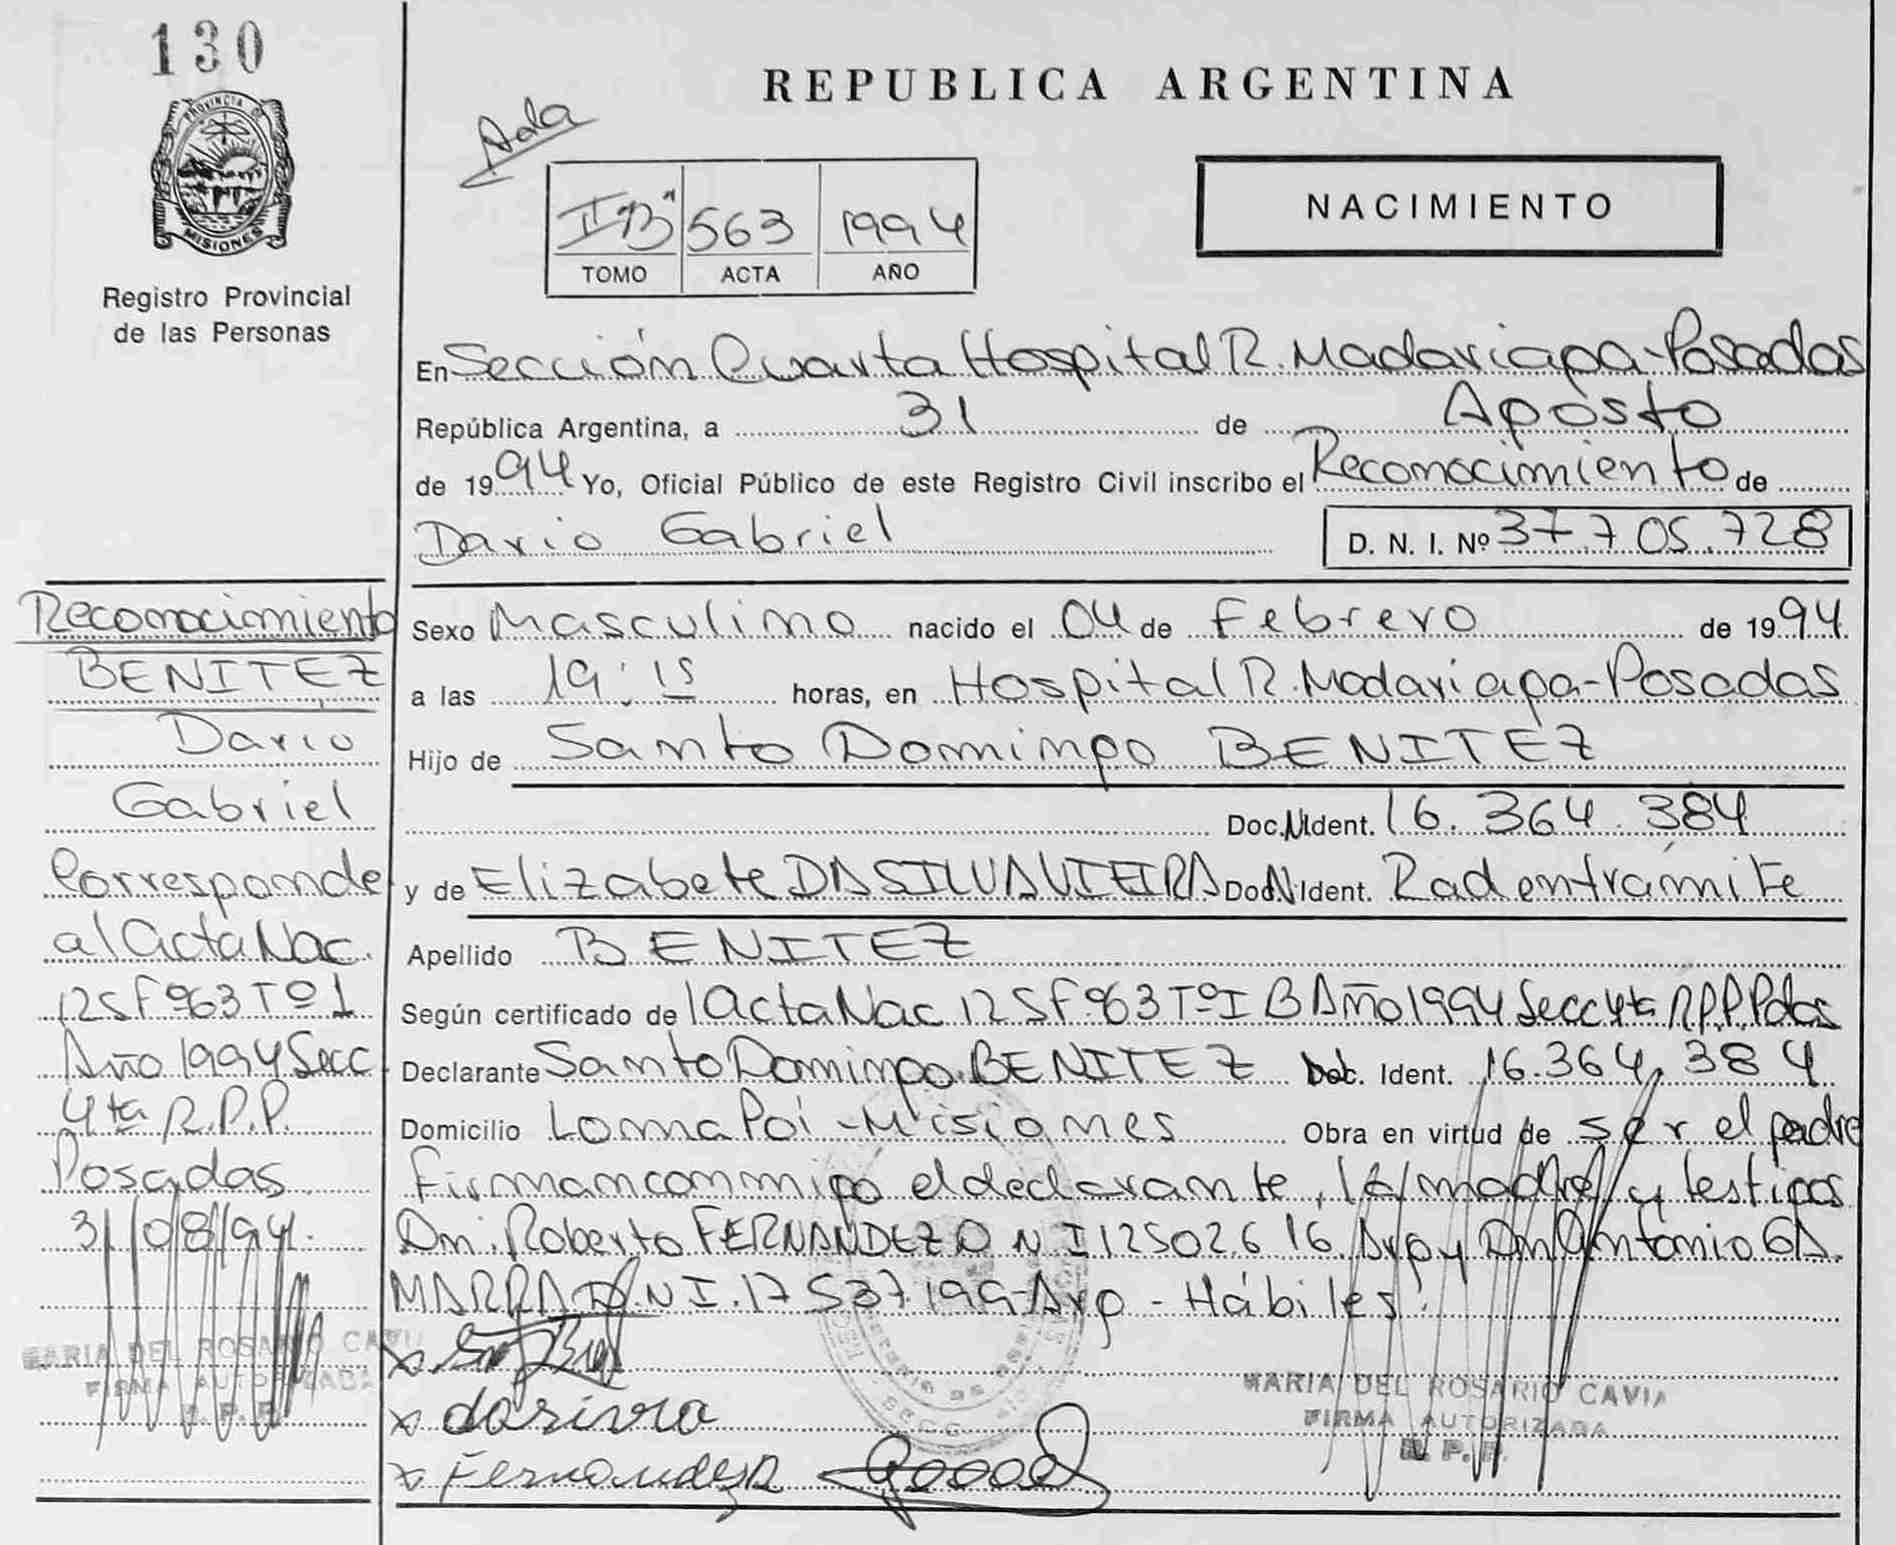 130
PROVINCIA D
MISIONES
Registro Provincial
de las Personas
Reconocimiento
BENITEZ
Dario
Gabriel
Corresponde
al Acta Nac.
125 Fº 63 Tº 1
Año 1994 Secc
4ta R.P.P.
Posadas
31/08/94.
MARIA DEL ROSARIO CAVIA
FIRMA AUTORIZADA
R. P. P.
REPUBLICA ARGENTINA
NACIMIENTO
I "B" 563 1994
TOMO ACTA AÑO
En Sección Cuarta Hospital R. Madariaga-Posadas
República Argentina, a 31 de Agosto
de 1994 Yo, Oficial Público de este Registro Civil inscribo el Reconocimiento de
Dario Gabriel D. N. I. Nº 37.705.728
Sexo Masculino nacido el 04 de Febrero de 1994.
a las 19:15 horas, en Hospital R. Madariaga-Posadas
Hijo de Santo Domingo BENITEZ
Doc. N Ident. 16.364.384
y de Elizabete DA SILVA VIEIRA Doc. N Ident. Rad en trámite
Apellido BENITEZ
Según certificado de l Acta Nac 125 Fº 63 Tº I B Año 1994 Secc 4ta R.P.P. Pdas
Declarante Santo Domingo BENITEZ Doc. Ident. 16.364.384
Domicilio Loma Poi - Misiones Obra en virtud de ser el padre
Firman conmigo el declarante, la madre y testigos
Dn. Roberto FERNANDEZ D N I 12502616 Arg y Dn Antonio GA
MARRA D.N I. 17537199-Arg - Hábiles.
x dasirra
x Fernandez R
MARIA DEL ROSARIO CAVIA
FIRMA AUTORIZADA
R. P. P.